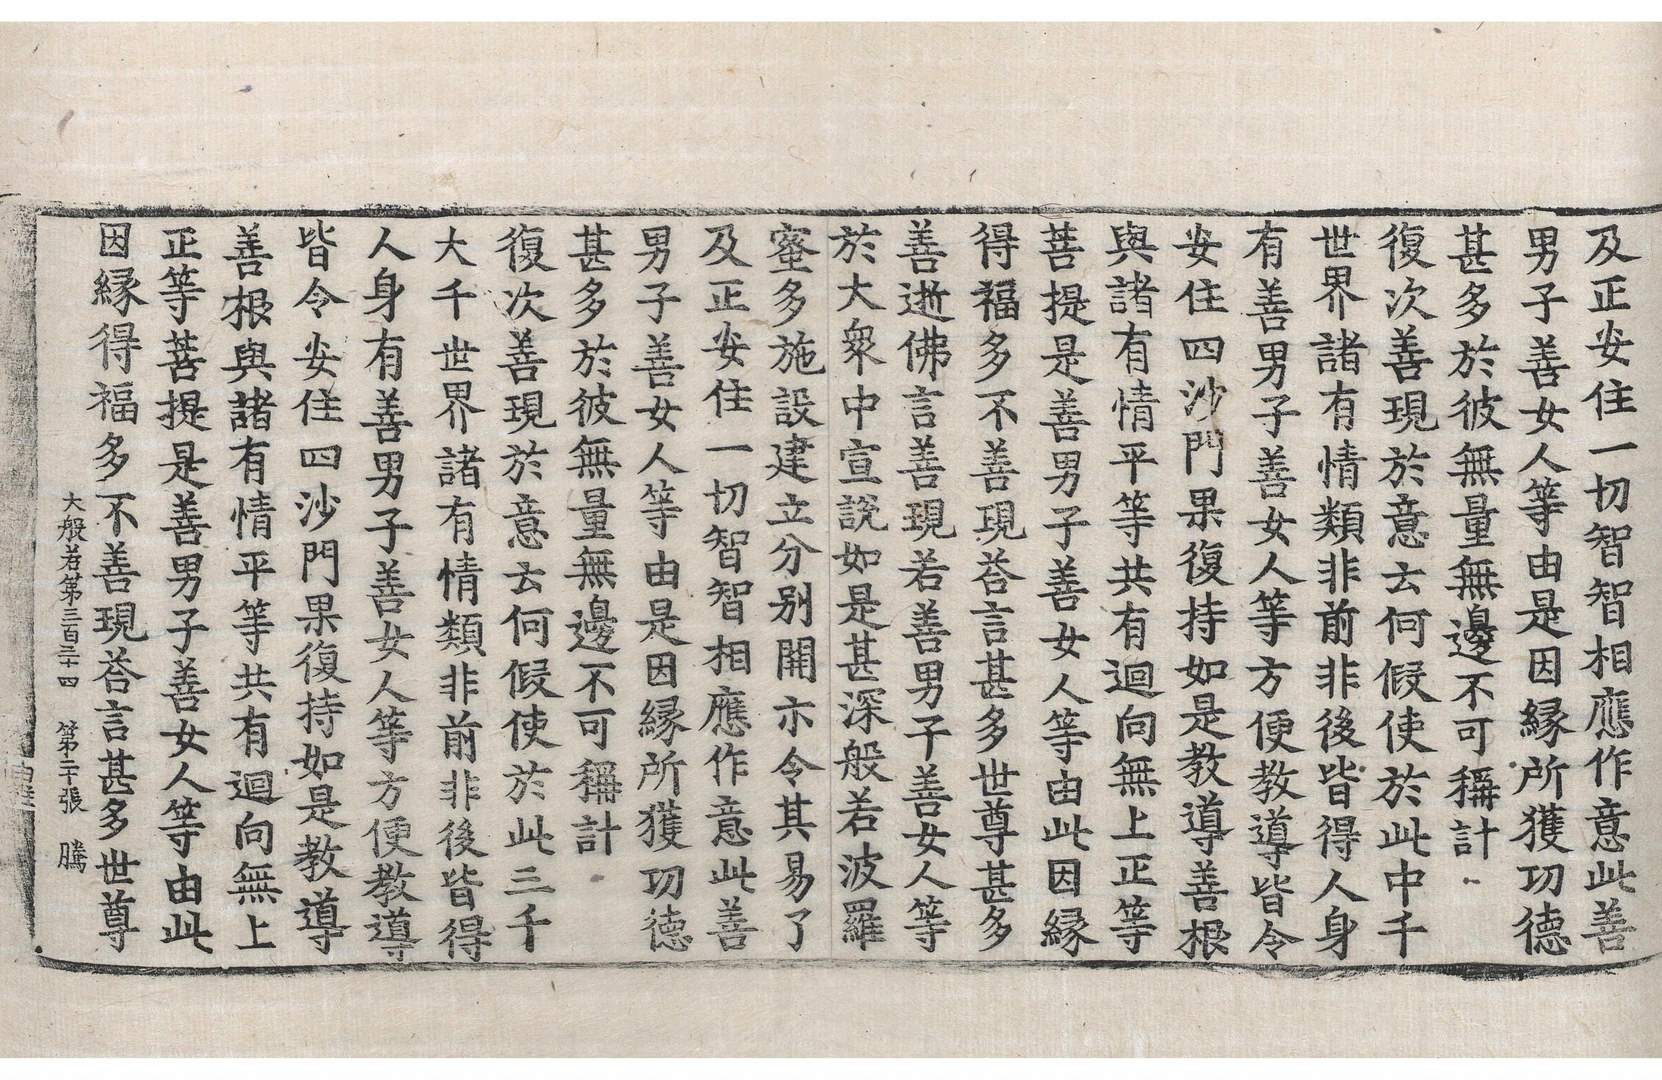 及正安住一切智智相應作意此善
男子善女人等由是因縁所獲功德
甚多於彼無量無邊不可稱計
復次善現於意云何假使於此中千
世界諸有情類非前非後皆得人身
有善男子善女人等方便教導皆令
安住四沙門果復持如是教導善根
與諸有情平等共有迴向無上正等
菩提是善男子善女人等由此因縁
得福多不善現荅言甚多世尊甚多
善逝佛言善現若善男子善女人等
於大衆中宣說如是甚深般若波羅
蜜多施設建立分别開示令其易了
及正安住一切智智相應作意此善
男子善女人等由是因縁所獲功德
甚多於彼無量無邊不可稱計
復次善現於意云何假使於此三千
大千世界諸有情類非前非後皆得
人身有善男子善女人等方便教導
皆令安住四沙門果復持如是教導
善根與諸有情平等共有迴向無上
正等菩提是善男子善女人等由此
因縁得福多不善現荅言甚多世尊
大般若第三百三十四 第二十張 騰